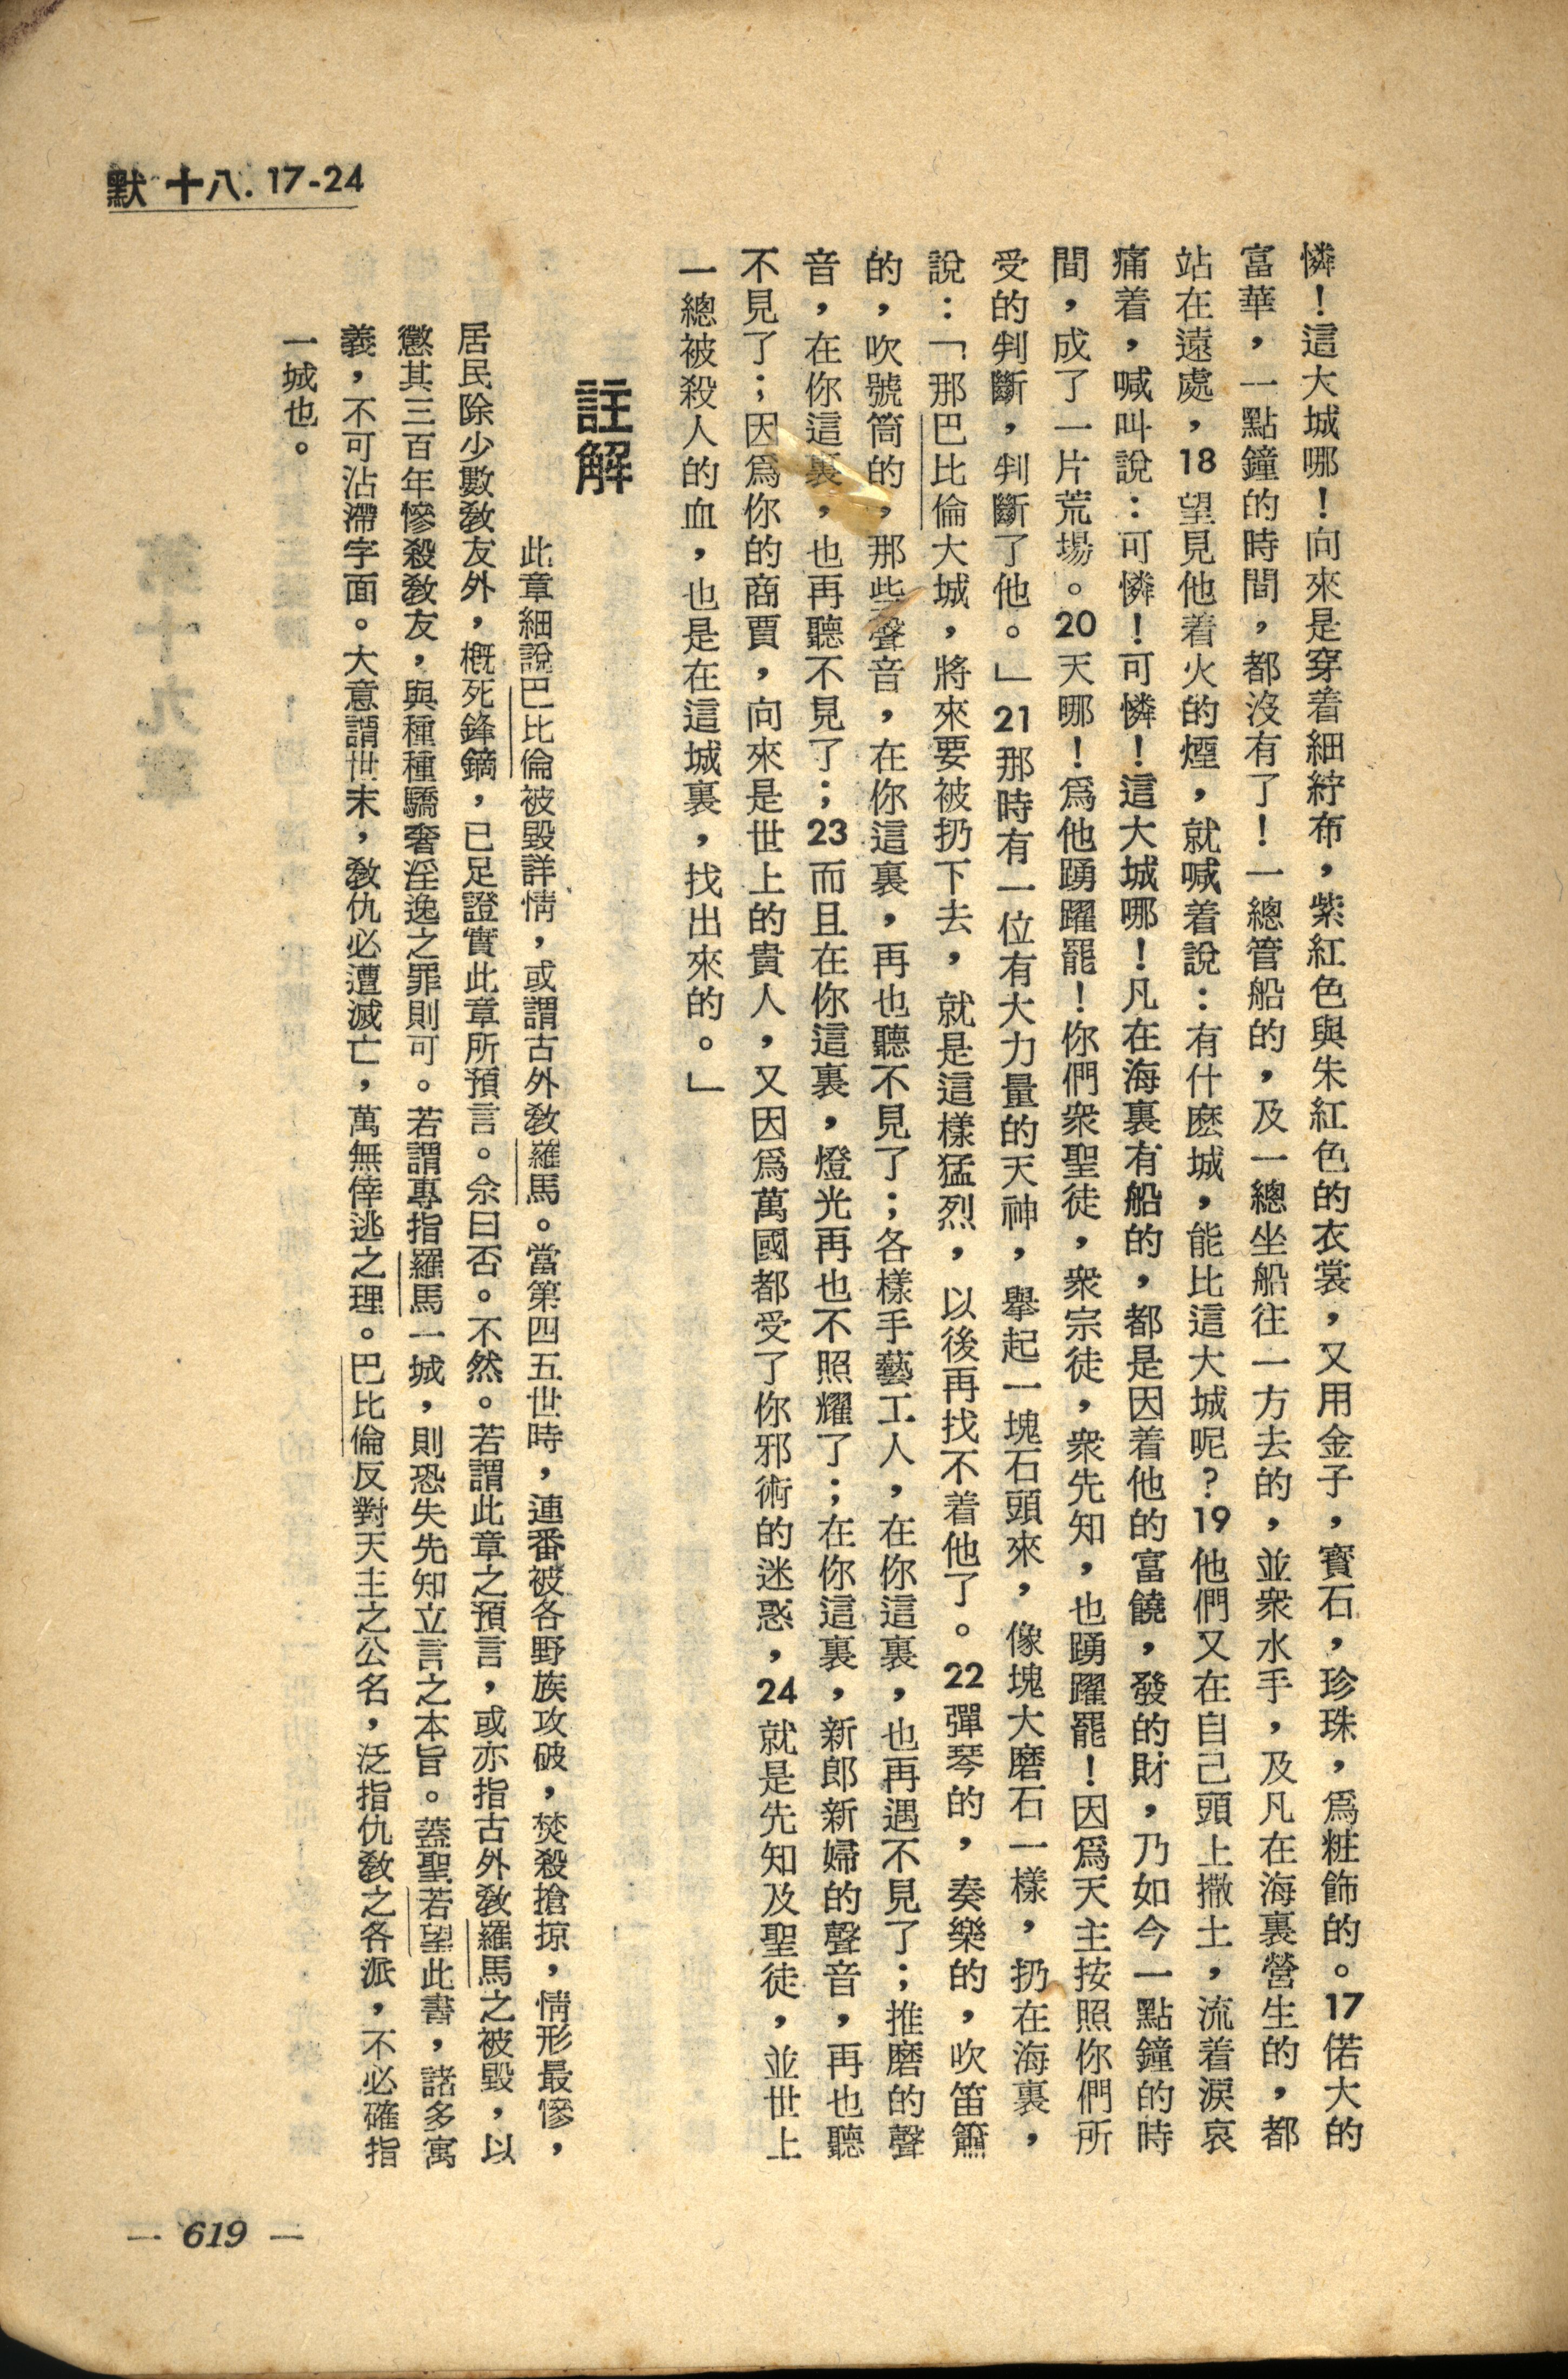 默 十八. 17-24
憐！這大城哪！向來是穿着細紵布，紫紅色與朱紅色的衣裳，又用金子，寳石，珍珠，爲粧飾的。17偌大的
富華，一點鐘的時間，都沒有了！一總管船的，及一總坐船往一方去的，並衆水手，及凡在海裏營生的，都
站在遠處，18望見他着火的煙，就喊着說：有什麽城，能比這大城呢？19他們又在自己頭上撒土，流着淚哀
痛着，喊叫說：可憐！可憐！這大城哪！凡在海裏有船的，都是因着他的富饒，發的財，乃如今一點鐘的時
間，成了一片荒場。20天哪！爲他踴躍罷！你們衆聖徒，衆宗徒，衆先知，也踴躍罷！因爲天主按照你們所
受的判斷，判斷了他。」21那時有一位有大力量的天神，舉起一塊石頭來，像塊大磨石一樣，扔在海裏，
說：「那巴比倫大城，將來要被扔下去，就是這樣猛烈，以後再找不着他了。22彈琴的，奏樂的，吹笛簫
的，吹號筒的，那些聲音，在你這裏，再也聽不見了；各樣手藝工人，在你這裏，也再遇不見了；推磨的聲
音，在你這裏，也再聽不見了；23而且在你這裏，燈光再也不照耀了；在你這裏，新郎新婦的聲音，再也聽
不見了；因爲你的商賈，向來是世上的貴人，又因爲萬國都受了你邪術的迷惑，24就是先知及聖徒，並世上
一總被殺人的血，也是在這城裏，找出來的。」
註解
此章細說巴比倫被毀詳情，或謂古外敎羅馬。當第四五世時，連番被各野族攻破，焚殺搶掠，情形最慘，
居民除少數敎友外，概死鋒鏑，已足證實此章所預言。余曰否。不然。若謂此章之預言，或亦指古外敎羅馬之被毀，以
懲其三百年慘殺敎友，與種種驕奢淫逸之罪則可。若謂專指羅馬一城，則恐失先知立言之本旨。蓋聖若望此書，諸多寓
義，不可沾滯字面。大意謂世末，敎仇必遭滅亡，萬無倖逃之理。巴比倫反對天主之公名，泛指仇敎之各派，不必確指
一城也。
— 619 —